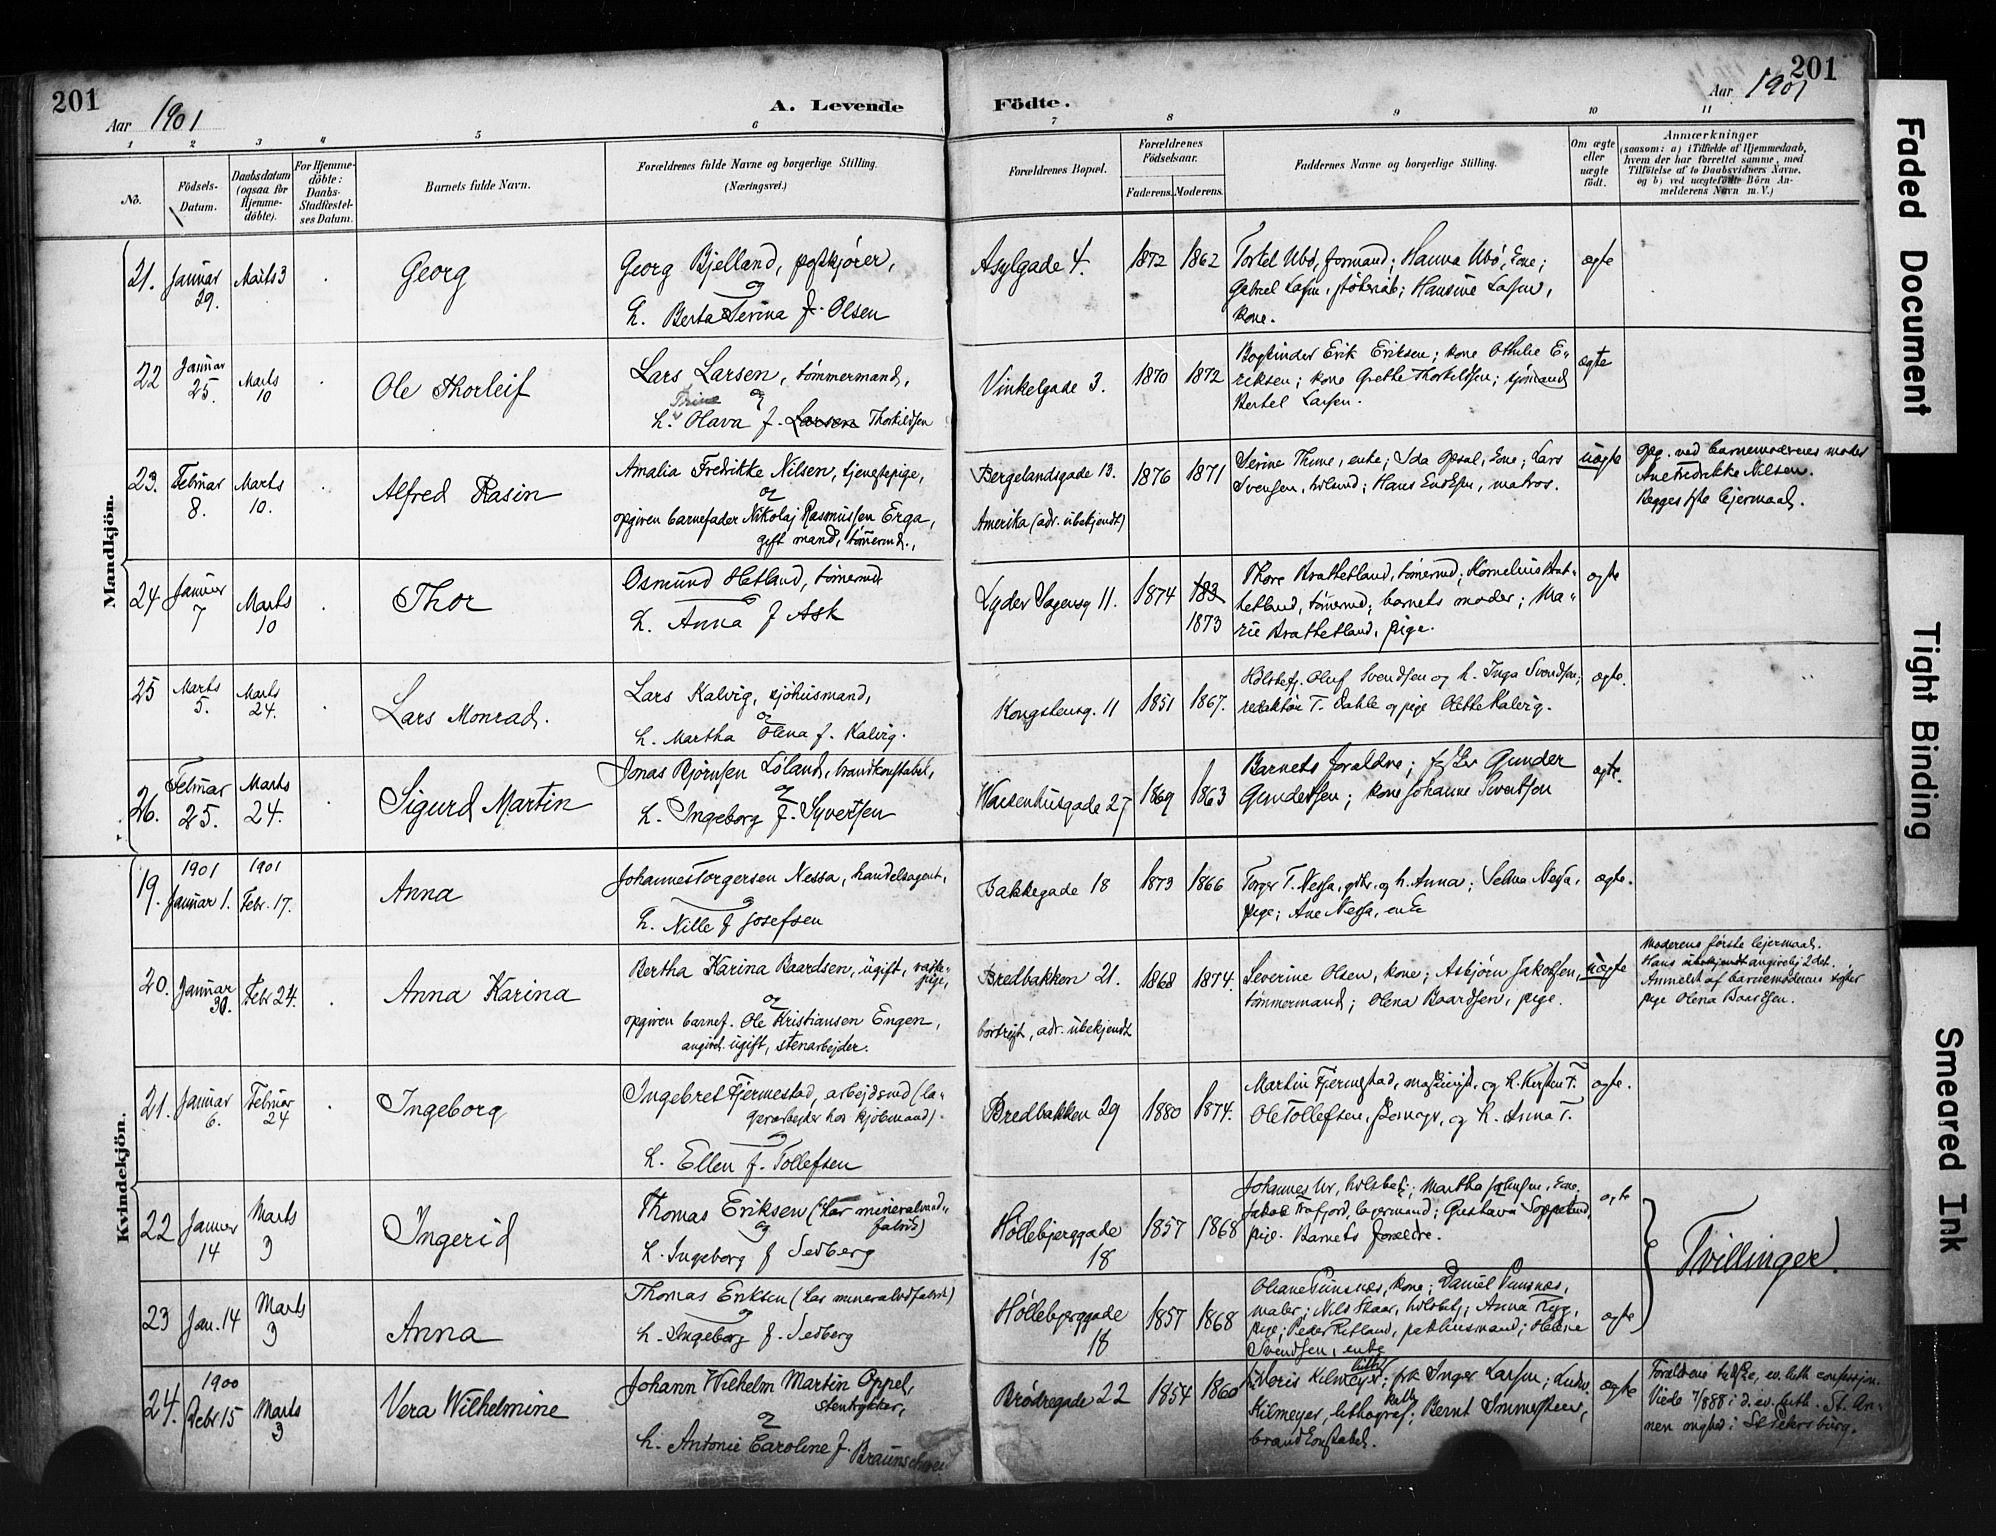 201
Aar 1901
A. Levende
Födte.
201
Aar 1901
1
2
3
4
5
6
7
8
9
10
11
No.
Födsels-
Datum.
Daabsdatum
(ogsaa för
Hjemme-
döbte).
For Hjemme-
döbte:
Daabs-
Stadfæstel-
ses Datum.
Barnets fulde Navn.
Forældrenes fulde Navne og borgerlige Stilling.
(Næringsvei.)
Forældrenes Bopæl.
Forældrenes
Födselsaar.
Faderens.
Moderens.
Faddernes Navne og borgerlige Stilling.
Om ægte
eller
uægte
født.
Anmærkninger
(saasom: a) i Tilfælde af Hjemmedaab,
hvem der har forrettet samme, med
Tilföielse af to Daabsvidners Navne,
og b) ved uægtefödte Börn An-
melderens Navn m. V.)
Mandkjön.
21.
Januar
29.
Marts 3
Georg
Georg Bjelland,
og
h. Berta Serina f. Olsen
Asylgade 4.
1872
1862
Tortel Ubø, formand; Hanna Ubø, kone;
Gabriel
kone.
ægte
22
Januar
25.
Marts
10
Ole Thorleif
Lars Larsen, tømmermand,
og
Trine
h. Olava f. Larsen Thorkildsen
Vinkelgade 3.
1870
1872
Bogbinder Erik Eriksen; kone Othilie E-
riksen; kone Grethe Thorkildsen; sjømand
Bertel Larsen.
ægte
23.
Februar
8.
Marts
10.
Alfred Rasin
Amalia Fredrikke Nilsen, tjenestepige,
og
opgiven barnefader Nikolaj Rasmussen Erga,
gift mand, tømermd.,
Bergelandsgade 13.
Amerika (adr. ubekjendt)
1876
1871
Serine Thime, enke; Ida Opsal, kone; Lars
Svensen, Hans Endresen, matros.
uægte
Opg. ved barnemoderens moder
Ane Fredrikke Nilsen.
Begges 1ste lejermaal.
24
Januar
7
Marts
10
Thor
Osmund Hetland, tømermd
og
h. Anna f Ask
Lyder Sagensg 11.
1874
183
1873
Thore Brattetland, tømermd; Kornelius Brat-
tetland, tømermd; barnets moder; Ma-
rie Brattetland, pige.
ægte
25
Marts
5.
Marts
24.
Lars Monrad.
Lars Kalvig, sjøhusmand,
og
h. Martha Olena f. Kalvig.
Kongstensg. 11
1851
1867.
Oluf Svendsen og h. Inga Svendsen;
redaktør T. Dahle og pige Olette Kalvig.
ægte.
26.
Februar
25.
Marts
24.
Sigurd Martin
Jonas Bjørnsen Løland, brandkonstabel,
og
h. Ingeborg f. Syvertsen
Waisenhusgade 27
1869
1863
Barnets forældre; Gunder
Gundersen; kone Johanne Sivertsen
ægte.
Kvindekjön.
19.
1901
Januar 1.
1901
Febr. 17.
Anna
Johannes Torgersen Nessa, handelsagent,
og
h. Nille f Josefsen
Bakkegade 18
1873
1866
Torger T. Nessa, og h. Anna; Selma Nessa,
pige; Ane Nessa, enke
ægte.
20.
Januar
30.
Febr 24.
Anna Karina
Bertha Karina Baardsen, ugift, vaske-
pige,
og
opgiven barnef. Ole Kristiansen Engen,
angivel. ugift, stenarbejder.
Bredbakken 21.
bortrejst, adr. ubekjendt
1868
1874.
Severine Olsen, kone; Asbjørn Jakobsen,
tømmermand; Olena Baardsen, pige.
uægte
Moderens første lejermaal.
Hans angivelig 2det.
Anmeldt af barnemoderens søster
pige Olena Baardsen.
21.
Januar
6.
Februar
24
Ingeborg
Ingebret Fjermestad, arbejdsmd (la-
gerarbejder hos kjøbmand).
og
h. Ellen f. Tollefsen
Bredbakken 29
1880
1874.
Martin Fjermestad, maskinist, og h. Kirsten F.
Ole Tollefsen, og h. Anna T.
ægte.
22
Januar
14
Marts
3
Ingerid
Thomas Eriksen (har mineralvand-
fabrik)
og
h. Ingeborg f Sedberg
Høllebjerggade
18
1857
1868
Johannes Ur, Martha Johnsen, kone,
Jakob Frafjord, lagermand; Gustava Soppeland,
pige. Barnets forældre.
ægte
Tvillinger.
23
Jan. 14
Marts
3
Anna
Thomas Eriksen (har mineralvdfabrik)
og
h. Ingeborg f. Sedberg
Høllebjerggade
18
1857
1868
Oliane Punsnæs, kone; Daniel Punsnæs,
maler; Nils Skaar, Anna Ryg,
pige; Peder Retland, pakhusmand; Helene
Svendsen, enke
ægte
24.
1900
Debr 15
Marts
3
Vera Wilhelmine
Johann Wilhelm Martin Oppel,
stentrykker,
og
h. Antonie Caroline f. Braunschwei
Brødregade 22
1854
1860
Kilmeyer; frk Inger Larsen;
Kilmeyer, lithograf; Bernt Immesteen,
brandkonstabel.
ægte
Forældrene tydske, ev. luth. confession.
Viede i d. ev. luth. St. An-
nen mghed i St Petersburg.
Faded Document
Tight Binding
Smeared Ink